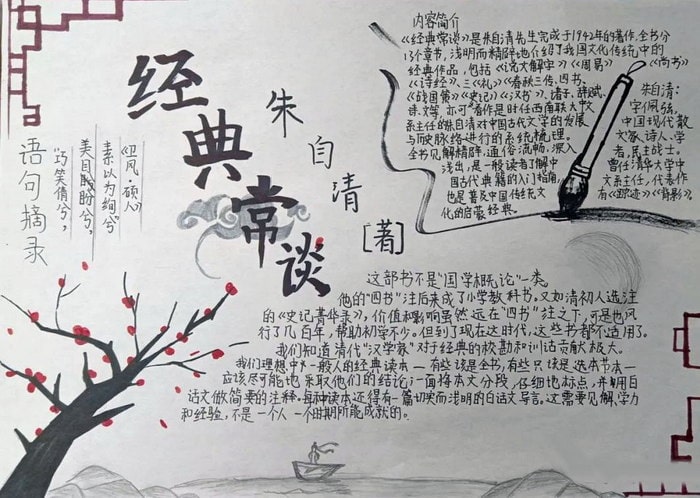 经典常谈
朱自清
[著]
内容简介
《经典常谈》是朱自清先生完成于1942年的著作.全书分
13个章节,浅明而精辟地介绍了我国文化传统中的
经典作品,包括《说文解字》《周易》《尚书》
《诗经》、三《礼》《春秋三传.四书.
《战国策》《史记》《汉书》、诸子.辞赋.
诗.文等,亦可 著作是时任西南联大中文
系主任的朱自清对中国古代文学的发展
与历史脉络进行的系统梳理。
全书见解精辟,通俗流畅,深入
浅出,是一般读者了解中
国古代典籍的入门指南,
也是普及中国传统文
化的启蒙经典。
朱自清:
字佩弦,
中国现代散
文家,诗人,学
者,民主战士。
曾任清华大学中
文系主任,代表作
有《踪迹》《背影》
语句摘录
"巧笑倩兮,
美目盼兮,
素以为绚兮"
《卫风·硕人》
这部书不是"国学概论"一类。
他的"四书"注后来成了小学教科书。又如清初人选注
的《史记菁华录》,价值和影响虽然远在"四书"注之下,可是也风
行了几百年,帮助初学不少。但到了现在这时代,这些书都不适用了。
我们知道清代"汉学家"对于经典的校勘和训诂贡献极大。
我们理想中一般人的经典读本——有些该是全书,有些只该是选本节本—
应该尽可能地采取他们的结论;一面将本文分段,仔细地标点,并用白
话文做简要的注释。每种读本还得有一篇切实而浅明的白话文导言。这需要见解、学力
和经验,不是一个人一个时期所能成就的。